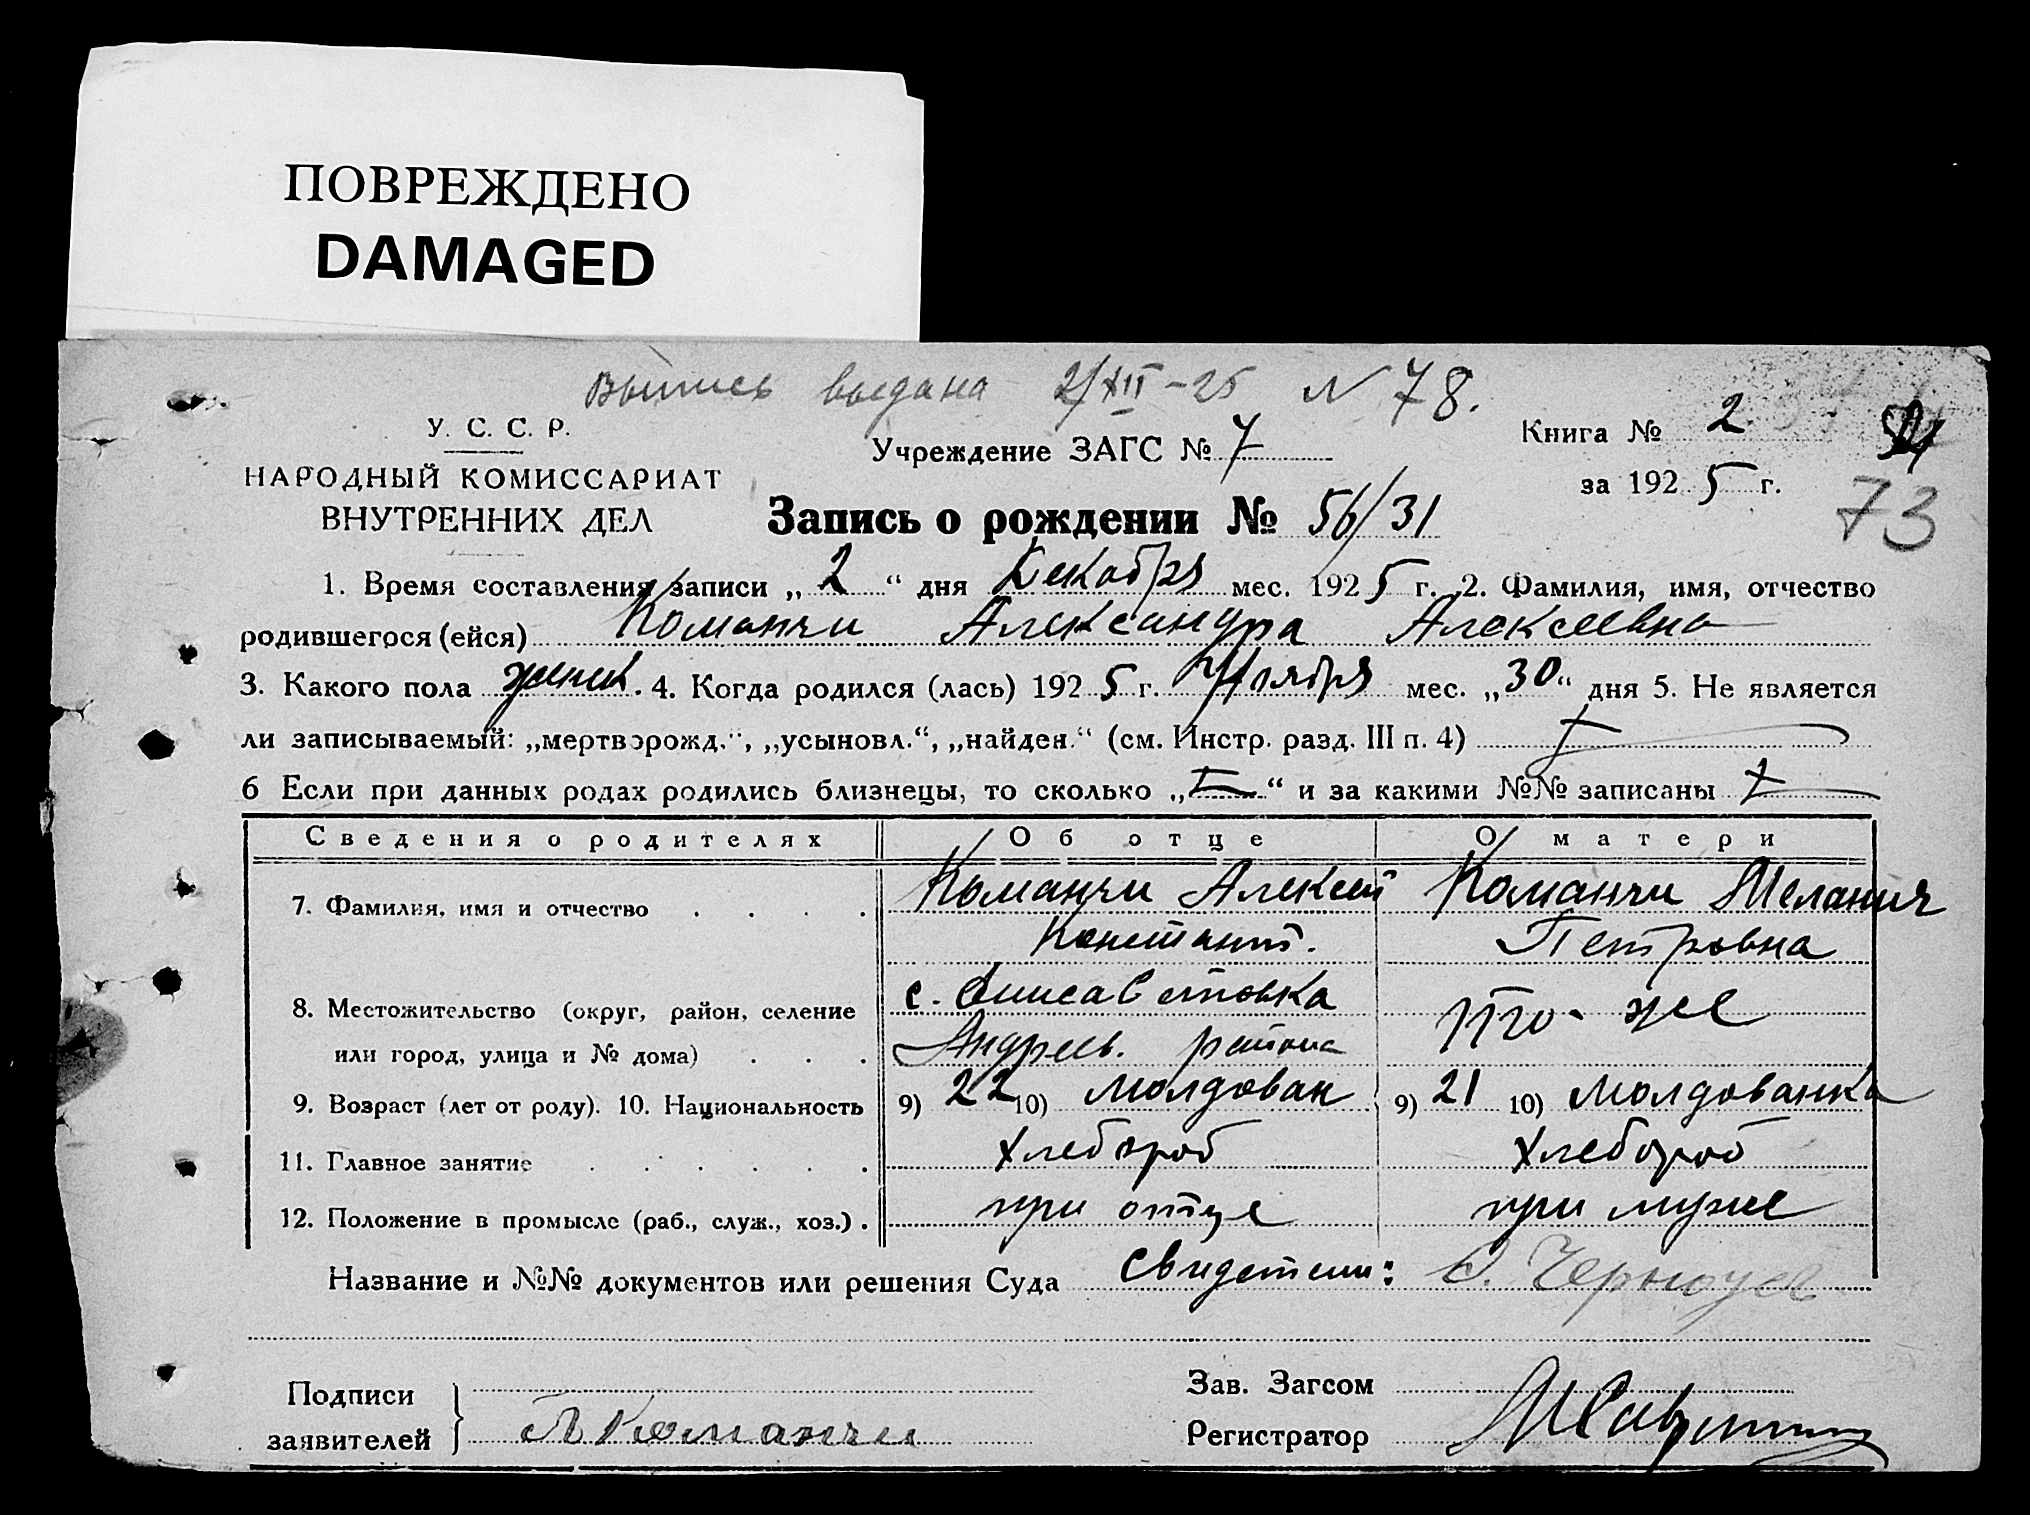 ПОВРЕЖДЕНО
DAMAGED
Выпись выдана 2/XII-25 N 78.
У. С. С. Р.
НАРОДНЫЙ КОМИССАРИАТ
ВНУТРЕННИХ ДЕЛ
Учреждение ЗАГС № 7
Книга № 2
за 1925 г.
73
Запись о рождении № 56/31
1. Время составления записи „2“ дня Декабря мес. 1925 г. 2. Фамилия, имя, отчество
родившегося (ейся) Команчи Александра Алексеевна
3. Какого пола женск. 4. Когда родился (лась) 1925 г. Ноября мес. „30“ дня 5. Не является
ли записываемый: „мертворожд.“, „усыновл.“, „найден.“ (см. Инстр. разд. III п. 4)
6 Если при данных родах родились близнецы, то сколько „—“ и за какими №№ записаны
Сведения о родителях Об отце О матери
7. Фамилия, имя и отчество Команчи Алексей Команчи Мелания
Констант. Петровна
8. Местожительство (округ, район, селение с. Елисаветовка то-же
или город, улица и № дома) Андреев. района
9. Возраст (лет от роду). 10. Национальность 9) 22 10) молдован 9) 21 10) молдованка
11. Главное занятие хлебороб хлебороб
12. Положение в промысле (раб., служ., хоз.) при отце при муже
Название и №№ документов или решения Суда Свидетели:
Подписи
заявителей А Команчи
Зав. Загсом
Регистратор